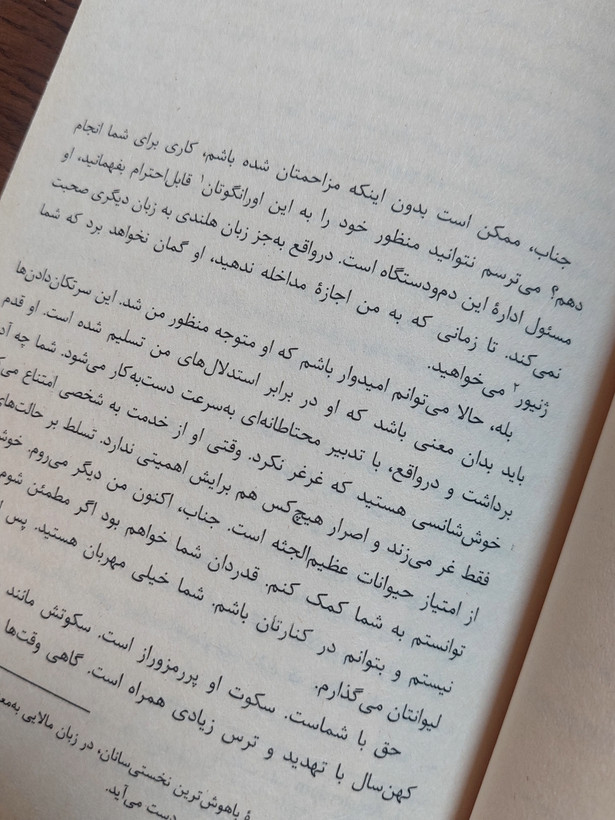 جناب، ممکن است بدون اینکه مزاحمتان شده باشم، کاری برای شما انجام
دهم؟ می‌ترسم نتوانید منظور خود را به این اورانگوتان۱ قابل‌احترام بفهمانید، او
مسئول ادارهٔ این دم‌ودستگاه است. درواقع به‌جز زبان هلندی به زبان دیگری صحبت
نمی‌کند. تا زمانی که به من اجازهٔ مداخله ندهید، او گمان نخواهد برد که شما
ژنیور۲ می‌خواهید.
بله، حالا می‌توانم امیدوار باشم که او متوجه منظور من شد. این سرتکان‌دادن‌ها
باید بدان معنی باشد که او در برابر استدلال‌های من تسلیم شده است. او قدم
برداشت و درواقع، با تدبیر محتاطانه‌ای به‌سرعت دست‌به‌کار می‌شود. شما چه
خوش‌شانسی هستید که غرغر نکرد. وقتی او از خدمت به شخصی امتناع
فقط غر می‌زند و اصرار هیچ‌کس هم برایش اهمیتی ندارد. تسلط بر
از امتیاز حیوانات عظیم‌الجثه است. جناب، اکنون من دیگر می‌روم.
توانستم به شما کمک کنم. قدردان شما خواهم بود اگر مطمئن شوم
نیستم و بتوانم در کنارتان باشم. شما خیلی مهربان هستید. پس
لیوانتان می‌گذارم.
حق با شماست. سکوت او پررمزوراز است. سکوتش مانند
کهن‌سال با تهدید و ترس زیادی همراه است. گاهی وقت‌ها
باهوش‌ترین نخستی‌سانان، در زبان مالایی
دست می‌آید.